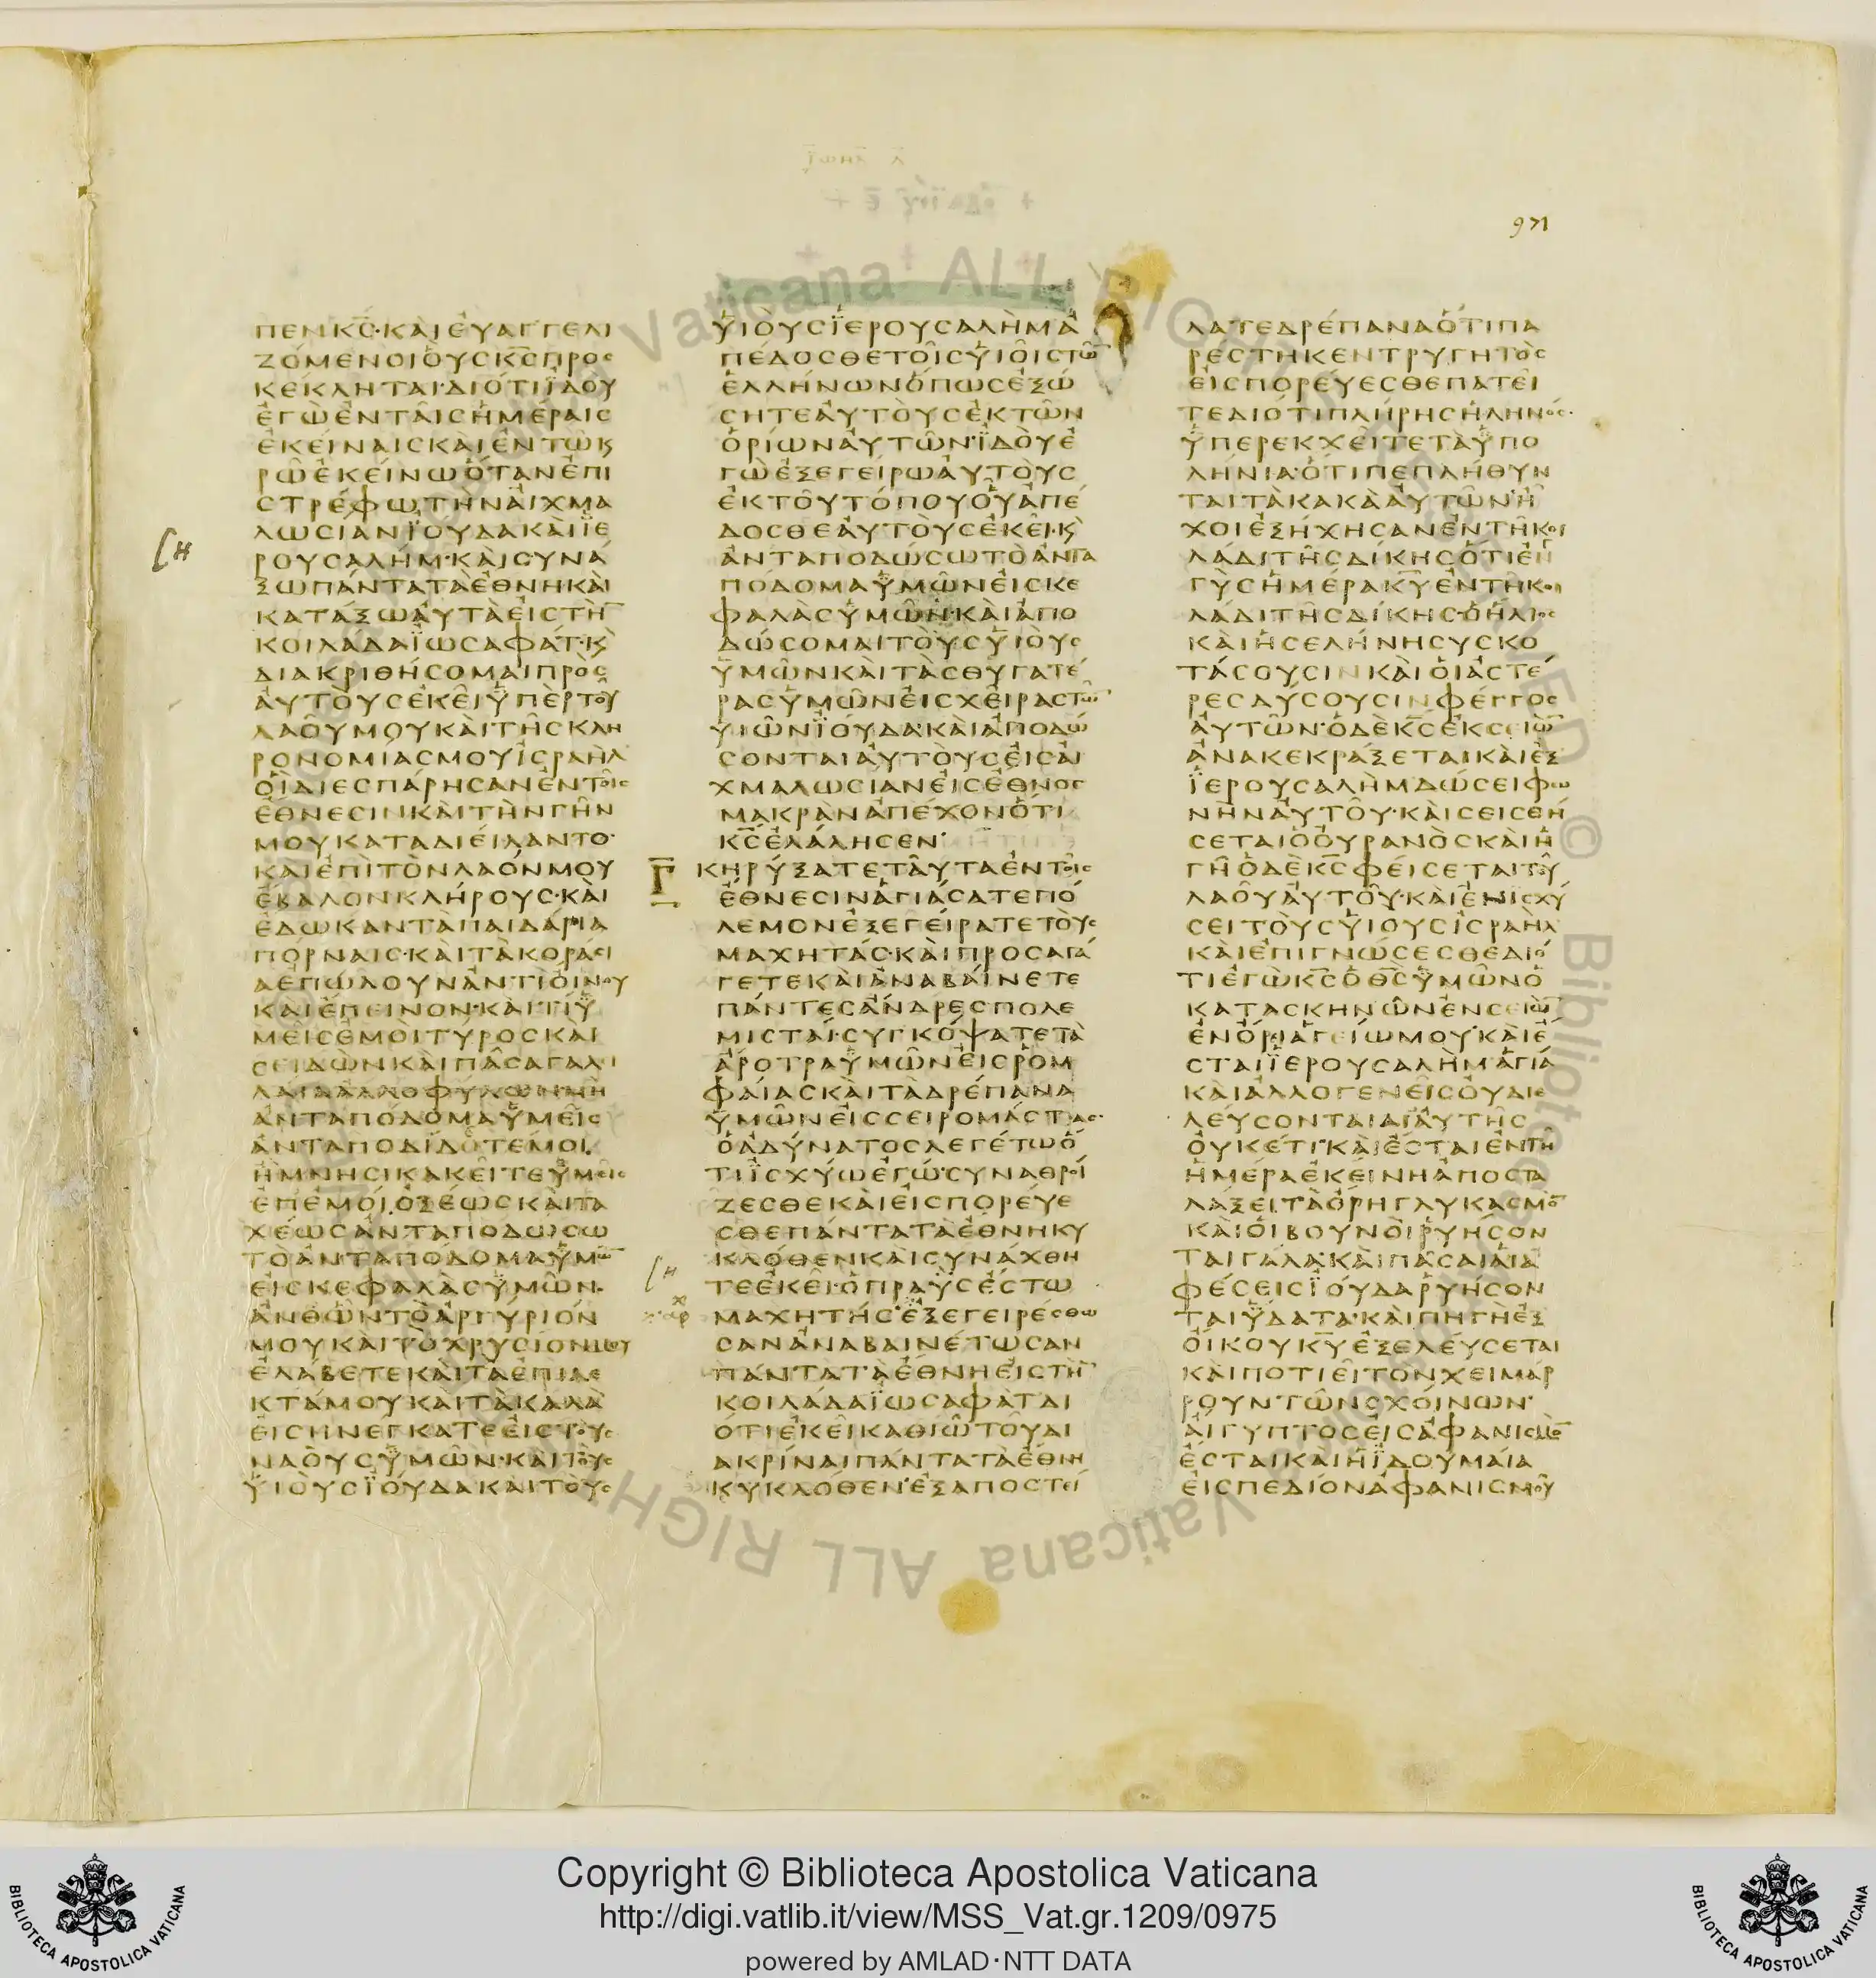 971
ΠΕΝΚΣ·ΚΑΙΕΥΑΓΓΕΛΙ
ΖΟΜΕΝΟΙΟΥΣΚΣΠΡΟΣ
ΚΕΚΛΗΤΑΙ·ΔΙΟΤΙΪΔΟΥ
ΕΓΩΕΝΤΑΙΣΗΜΕΡΑΙΣ
ΕΚΕΙΝΑΙΣΚΑΙΕΝΤΩΚ
ΡΩΕΚΕΙΝΩΟΤΑΝΕΠΙ
ΣΤΡΕΦΩΤΗΝΑΙΧΜΑ
ΛΩΣΙΑΝΪΟΥΔΑΚΑΙΪΕ
ΡΟΥΣΑΛΗΜ·ΚΑΙΣΥΝΑ
ΞΩΠΑΝΤΑΤΑΕΘΝΗΚΑΙ
ΚΑΤΑΞΩΑΥΤΑΕΙΣΤΗ
ΚΟΙΛΑΔΑΪΩΣΑΦΑΤ·Κ
ΔΙΑΚΡΙΘΗΣΟΜΑΙΠΡΟΣ
ΑΥΤΟΥΣΕΚΕΙΥΠΕΡΤΟΥ
ΛΑΟΥΜΟΥΚΑΙΤΗΣΚΛΗ
ΡΟΝΟΜΙΑΣΜΟΥΙΣΡΑΗΛ
ΟΙΔΙΕΣΠΑΡΗΣΑΝΕΝΤΟΙΣ
ΕΘΝΕΣΙΝΚΑΙΤΗΝΓΗΝ
ΜΟΥΚΑΤΑΔΙΕΙΛΑΝΤΟ·
ΚΑΙΕΠΙΤΟΝΛΑΟΝΜΟΥ
ΕΒΑΛΟΝΚΛΗΡΟΥΣ·ΚΑΙ
ΕΔΩΚΑΝΤΑΠΑΙΔΑΡΙΑ
ΠΟΡΝΑΙΣ·ΚΑΙΤΑΚΟΡΑΣΙ
ΑΕΠΩΛΟΥΝΑΝΤΙΟΙΝΟΥ
ΚΑΙΕΠΕΙΝΟΝ·ΚΑΙΤΙΥ
ΜΕΙΣΕΜΟΙΤΥΡΟΣΚΑΙ
ΣΕΙΔΩΝΚΑΙΠΑΣΑΓΑΛΙ
ΛΑΙΑΑΛΛΟΦΥΛΩΝΜΗ
ΑΝΤΑΠΟΔΟΜΑΥΜΕΙΣ
ΑΝΤΑΠΟΔΙΔΟΤΕΜΟΙ
ΗΜΝΗΣΙΚΑΚΕΙΤΕΥΜΕΙΣ
ΕΠΕΜΟΙΟΞΕΩΣΚΑΙΤΑ
ΧΕΩΣΑΝΤΑΠΟΔΩΣΩ
ΤΟΑΝΤΑΠΟΔΟΜΑΥΜΩ
ΕΙΣΚΕΦΑΛΑΣΥΜΩΝ·
ΑΝΘΩΝΤΟΑΡΓΥΡΙΟΝ
ΜΟΥΚΑΙΤΟΧΡΥΣΙΟΝΜΟΥ
ΕΛΑΒΕΤΕΚΑΙΤΑΕΠΙΛΕ
ΚΤΑΜΟΥΚΑΙΤΑΚΑΛΑ
ΕΙΣΗΝΕΓΚΑΤΕΕΙΣΤΟΥΣ
ΝΑΟΥΣΥΜΩΝ·ΚΑΙΤΟΥΣ
ΥΙΟΥΣΪΟΥΔΑΚΑΙΤΟΥΣ
ΥΙΟΥΣΪΕΡΟΥΣΑΛΗΜΑ
ΠΕΔΟΣΘΕΤΟΙΣΥΙΟΙΣΤΩ
ΕΛΛΗΝΩΝΟΠΩΣΕΞΩ
ΣΗΤΕΑΥΤΟΥΣΕΚΤΩΝ
ΟΡΙΩΝΑΥΤΩΝ·ΪΔΟΥΕ
ΓΩΕΞΕΓΕΙΡΩΑΥΤΟΥΣ
ΕΚΤΟΥΤΟΠΟΥΟΥΑΠΕ
ΔΟΣΘΕΑΥΤΟΥΣΕΚΕΙ·Κ
ΑΝΤΑΠΟΔΩΣΩΤΟΑΝΤΑ
ΠΟΔΟΜΑΥΜΩΝΕΙΣΚΕ
ΦΑΛΑΣΥΜΩΝ·ΚΑΙΑΠΟ
ΔΩΣΟΜΑΙΤΟΥΣΥΙΟΥΣ
ΥΜΩΝΚΑΙΤΑΣΘΥΓΑΤΕ
ΡΑΣΥΜΩΝΕΙΣΧΕΙΡΑΣΤΩ
ΥΙΩΝΪΟΥΔΑ·ΚΑΙΑΠΟΔΩ
ΣΟΝΤΑΙΑΥΤΟΥΣΕΙΣΑΙ
ΧΜΑΛΩΣΙΑΝΕΙΣΕΘΝΟΣ
ΜΑΚΡΑΝΑΠΕΧΟΝΟΤΙ
ΚΣΕΛΑΛΗΣΕΝ·
Γ ΚΗΡΥΞΑΤΕΤΑΥΤΑΕΝΤΟΙΣ
ΕΘΝΕΣΙΝΑΓΙΑΣΑΤΕΠΟ
ΛΕΜΟΝΕΞΕΓΕΙΡΑΤΕΤΟΥΣ
ΜΑΧΗΤΑΣ·ΚΑΙΠΡΟΣΑΓΑ
ΓΕΤΕΚΑΙΑΝΑΒΑΙΝΕΤΕ
ΠΑΝΤΕΣΑΝΔΡΕΣΠΟΛΕ
ΜΙΣΤΑΙ·ΣΥΓΚΟΨΑΤΕΤΑ
ΑΡΟΤΡΑΥΜΩΝΕΙΣΡΟΜ
ΦΑΙΑΣΚΑΙΤΑΔΡΕΠΑΝΑ
ΥΜΩΝΕΙΣΣΕΙΡΟΜΑΣΤΑΣ·
ΟΑΔΥΝΑΤΟΣΛΕΓΕΤΩΟ
ΤΙΪΣΧΥΩΕΓΩ·ΣΥΝΑΘΡΟΙ
ΖΕΣΘΕΚΑΙΕΙΣΠΟΡΕΥΕ
ΣΘΕΠΑΝΤΑΤΑΕΘΝΗΚΥ
ΚΛΟΘΕΝΚΑΙΣΥΝΑΧΘΗ
ΤΕΕΚΕΙ·ΟΠΡΑΥΣΕΣΤΩ
ΜΑΧΗΤΗΣ·ΕΞΕΓΕΙΡΕΣΘΩ
ΣΑΝΑΝΑΒΑΙΝΕΤΩΣΑΝ
ΠΑΝΤΑΤΑΕΘΝΗΕΙΣΤΗ
ΚΟΙΛΑΔΑΪΩΣΑΦΑΤΔΙ
ΟΤΙΕΚΕΙΚΑΘΙΩΤΟΥΔΙ
ΑΚΡΙΝΑΙΠΑΝΤΑΤΑΕΘΝΗ
ΚΥΚΛΟΘΕΝ·ΕΞΑΠΟΣΤΕΙ
ΛΑΤΕΔΡΕΠΑΝΑΟΤΙΠΑ
ΡΕΣΤΗΚΕΝΤΡΥΓΗΤΟΣ
ΕΙΣΠΟΡΕΥΕΣΘΕΠΑΤΕΙ
ΤΕΔΙΟΤΙΠΛΗΡΗΣΗΛΗΝΟΣ·
ΥΠΕΡΕΚΧΕΙΤΕΤΑΥΠΟ
ΛΗΝΙΑ·ΟΤΙΠΕΠΛΗΘΥΝ
ΤΑΙΤΑΚΑΚΑΑΥΤΩΝ·Η
ΧΟΙΕΞΗΧΗΣΑΝΕΝΤΗΚΟΙ
ΛΑΔΙΤΗΣΔΙΚΗΣΟΤΙΕΓ
ΓΥΣΗΜΕΡΑΚΥΕΝΤΗΚΟΙ
ΛΑΔΙΤΗΣΔΙΚΗΣ·ΟΗΛΙΟΣ
ΚΑΙΗΣΕΛΗΝΗΣΥΣΚΟ
ΤΑΣΟΥΣΙΝΚΑΙΟΙΑΣΤΕ
ΡΕΣΔΥΣΟΥΣΙΝΦΕΓΓΟΣ
ΑΥΤΩΝ·ΟΔΕΚΣΕΚΣΕΙΩ
ΑΝΑΚΕΚΡΑΞΕΤΑΙΚΑΙΕΞ
ΪΕΡΟΥΣΑΛΗΜΔΩΣΕΙΦΩ
ΝΗΝΑΥΤΟΥ·ΚΑΙΣΕΙΣΘΗ
ΣΕΤΑΙΟΟΥΡΑΝΟΣΚΑΙΗ
ΓΗΟΔΕΚΣΦΕΙΣΕΤΑΙΤΟΥ
ΛΑΟΥΑΥΤΟΥ·ΚΑΙΕΝΙΣΧΥ
ΣΕΙΤΟΥΣΥΙΟΥΣΙΣΡΑΗΛ
ΚΑΙΕΠΙΓΝΩΣΕΣΘΕΔΙΟ
ΤΙΕΓΩΚΣΟΘΣΥΜΩΝΟ
ΚΑΤΑΣΚΗΝΩΝΕΝΣΕΙΩ
ΕΝΟΡΙΑΓΕΙΩΜΟΥ·ΚΑΙΕ
ΣΤΑΙΪΕΡΟΥΣΑΛΗΜΑΓΙΑ
ΚΑΙΑΛΛΟΓΕΝΕΙΣΟΥΔΙΕ
ΛΕΥΣΟΝΤΑΙΔΙΑΥΤΗΣ
ΟΥΚΕΤΙ·ΚΑΙΕΣΤΑΙΕΝΤΗ
ΗΜΕΡΑΕΚΕΙΝΗΑΠΟΣΤΑ
ΛΑΞΕΙΤΑΟΡΗΓΛΥΚΑΣΜΟ
ΚΑΙΟΙΒΟΥΝΟΙΡΥΗΣΟΝ
ΤΑΙΓΑΛΑ·ΚΑΙΠΑΣΑΙΑΙΑ
ΦΕΣΕΙΣΪΟΥΔΑΡΥΗΣΟΝ
ΤΑΙΥΔΑΤΑ·ΚΑΙΠΗΓΗΕΞ
ΟΙΚΟΥΚΥΕΞΕΛΕΥΣΕΤΑΙ
ΚΑΙΠΟΤΙΕΙΤΟΝΧΕΙΜΑΡ
ΡΟΥΝΤΩΝΣΧΟΙΝΩΝ·
ΑΙΓΥΠΤΟΣΕΙΣΑΦΑΝΙΣΜΟ
ΕΣΤΑΙΚΑΙΗΪΔΟΥΜΑΙΑ
ΕΙΣΠΕΔΙΟΝΑΦΑΝΙΣΜΟΥ
Copyright © Biblioteca Apostolica Vaticana
http://digi.vatlib.it/view/MSS_Vat.gr.1209/0975
powered by AMLAD·NTT DATA
BIBLIOTECA APOSTOLICA VATICANA
BIBLIOTECA APOSTOLICA VATICANA